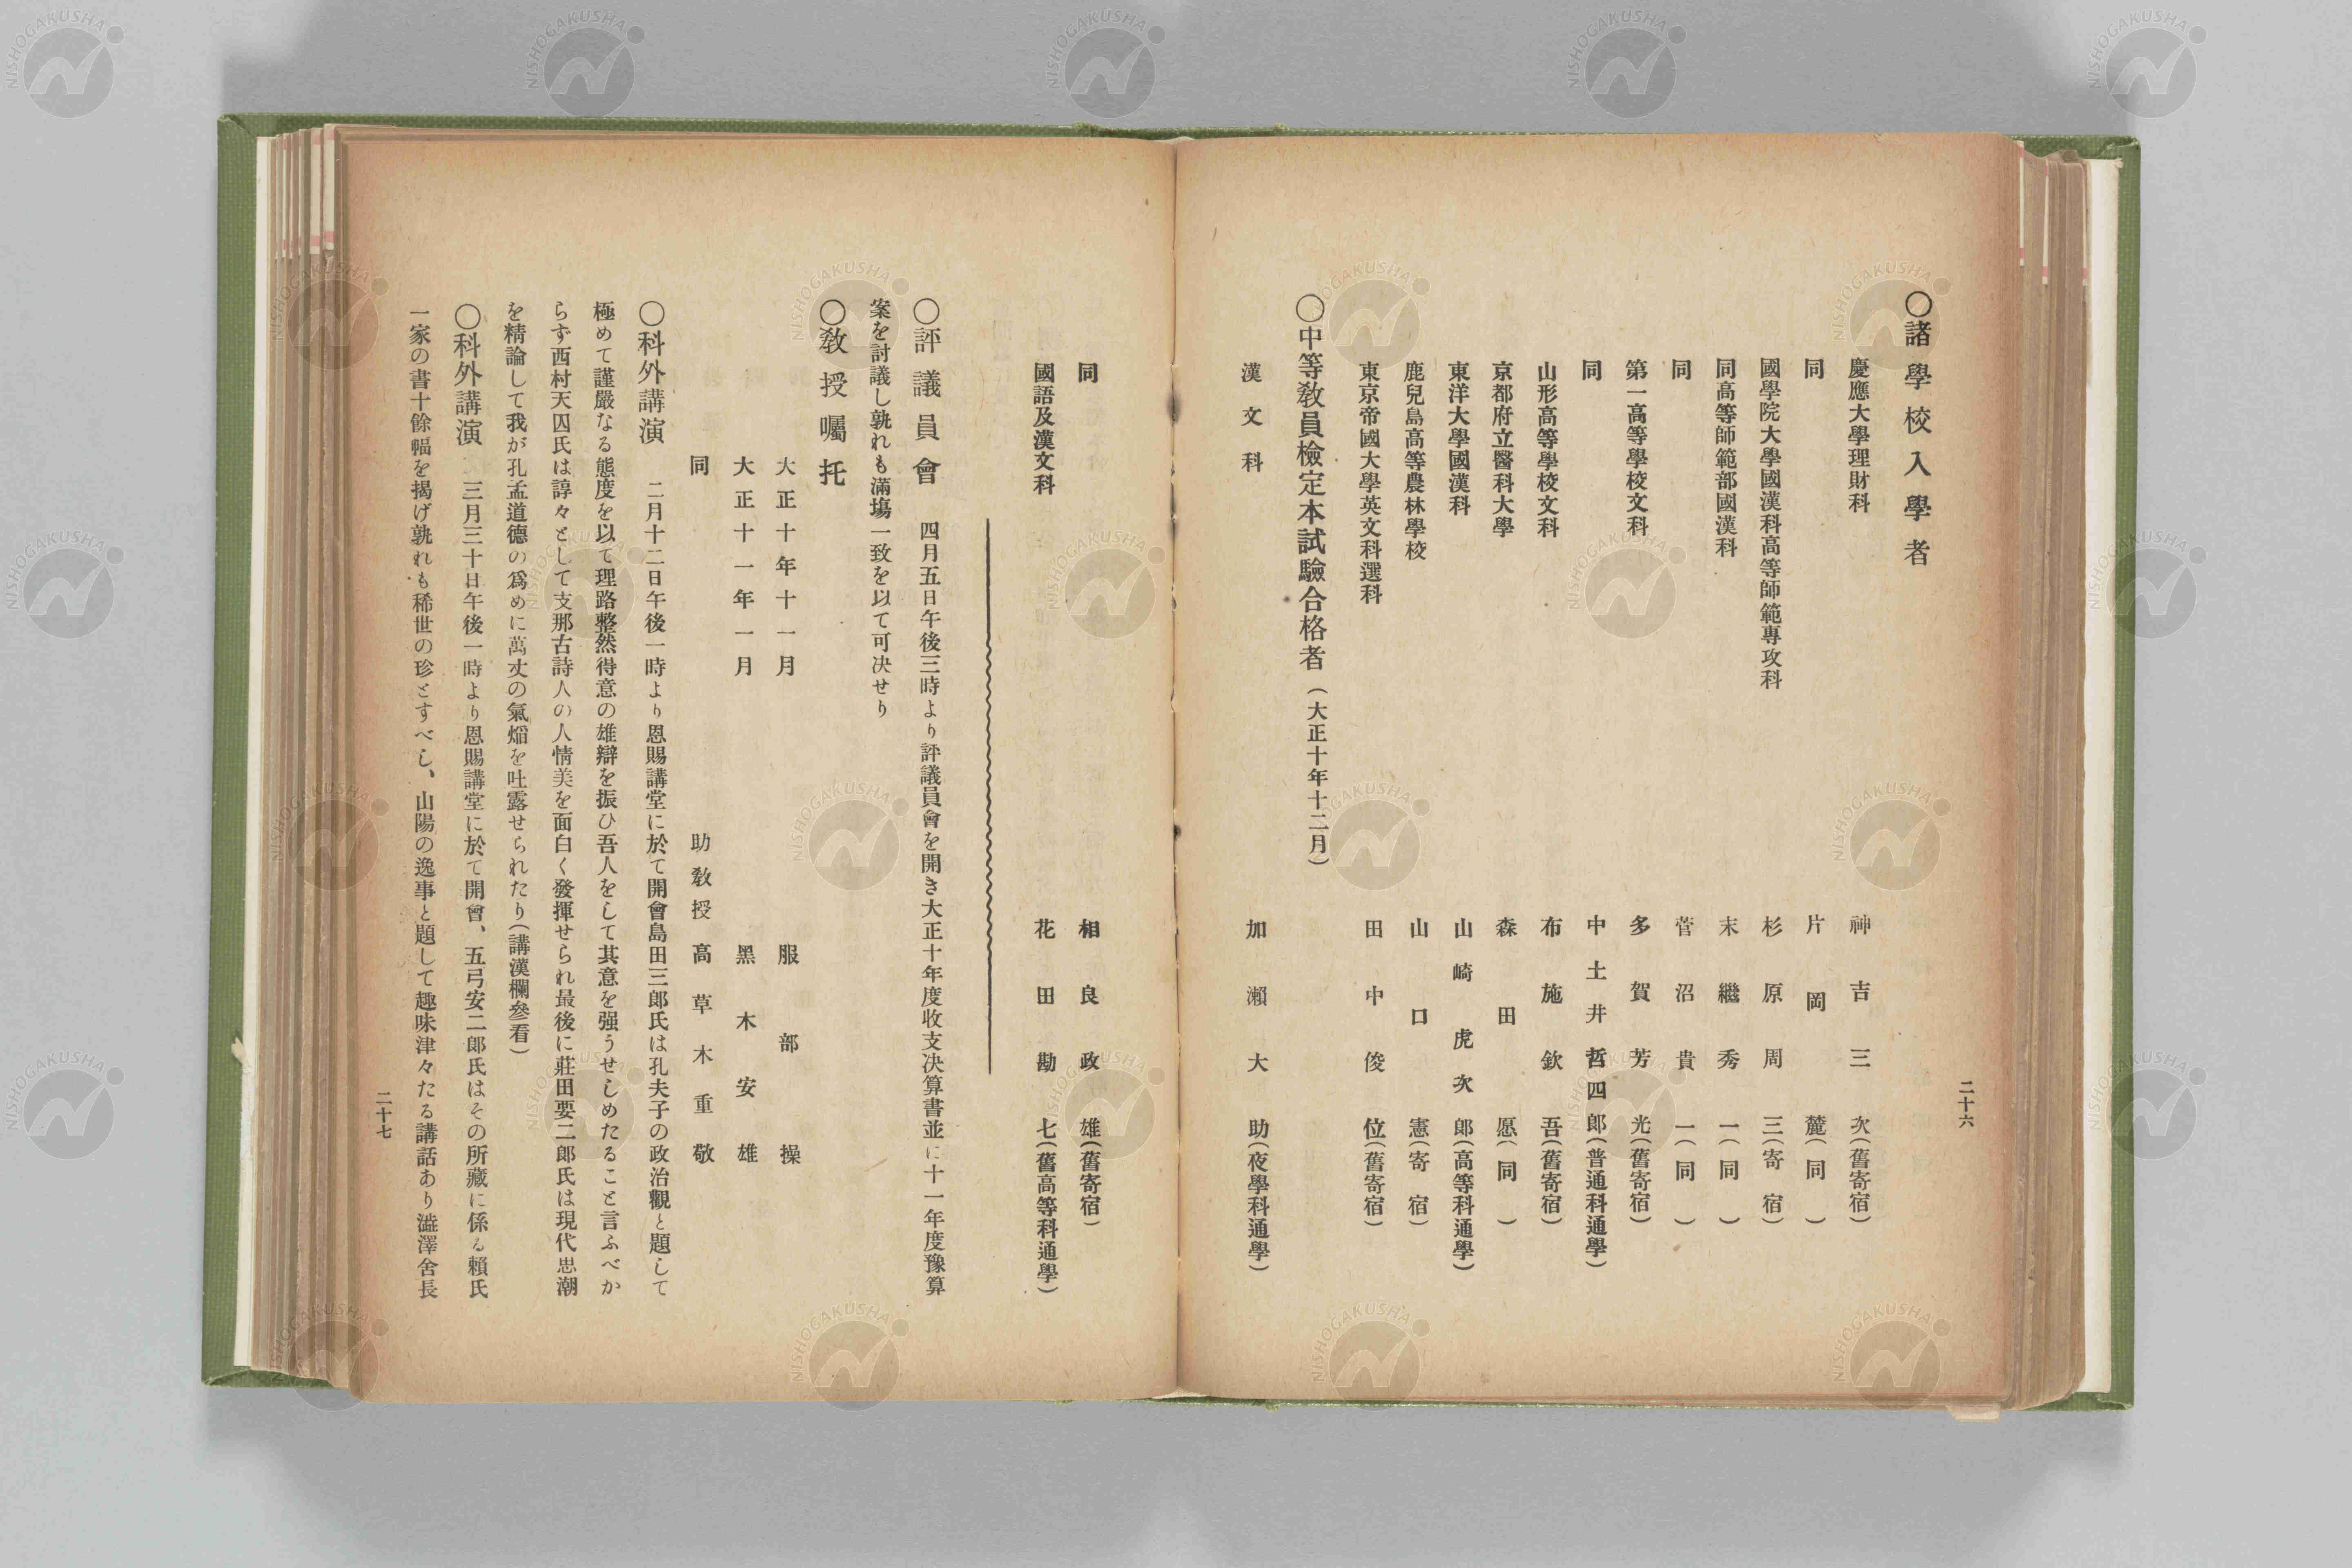 二十六
〇諸學校入學者
慶應大學理財科 神吉三次(舊寄宿)
同 片岡麓(同)
國學院大學國漢科高等師範專攻科 杉原周三(寄宿)
同高等師範部國漢科 末繼秀一(同)
同 菅沼貴一(同)
第一高等學校文科 多賀芳光(舊寄宿)
同 中土井哲四郎(普通科通學)
山形高等學校文科 布施欽吾(舊寄宿)
京都府立醫科大學 森田愿(同)
東洋大學國漢科 山崎虎次郎(高等科通學)
鹿兒島高等農林學校 山口憲(寄宿)
東京帝國大學英文科選科 田中俊位(舊寄宿)
〇中等敎員檢定本試驗合格者(大正十年十二月)
漢文科 加瀨大助(夜學科通學)
同 相良政雄(舊寄宿)
國語及漢文科 花田勘七(舊高等科通學)
〇評議員會 四月五日午後三時より評議員會を開き大正十年度收支决算書並に十一年度豫算
案を討議し孰れも滿塲一致を以て可决せり
〇敎授囑托
大正十年十一月 服部操
大正十一年一月 黑木安雄
同 助敎授 高草木重敬
〇科外講演 二月十二日午後一時より恩賜講堂に於て開會島田三郎氏は孔夫子の政治觀と題して
極めて謹嚴なる態度を以て理路整然得意の雄辯を振ひ吾人をして其意を强うせしめたること言ふべか
らず西村天囚氏は諄々として支那古詩人の人情美を面白く發揮せられ最後に莊田要二郎氏は現代思潮
を精論して我が孔孟道德の爲めに萬丈の氣焰を吐露せられたり(講漢欄參看)
〇科外講演 三月三十日午後一時より恩賜講堂に於て開會、五弓安二郎氏はその所藏に係る賴氏
一家の書十餘幅を揭げ孰れも稀世の珍とすべし、山陽の逸事と題して趣味津々たる講話あり澁澤舍長
二十七
NISHOGAKUSHA